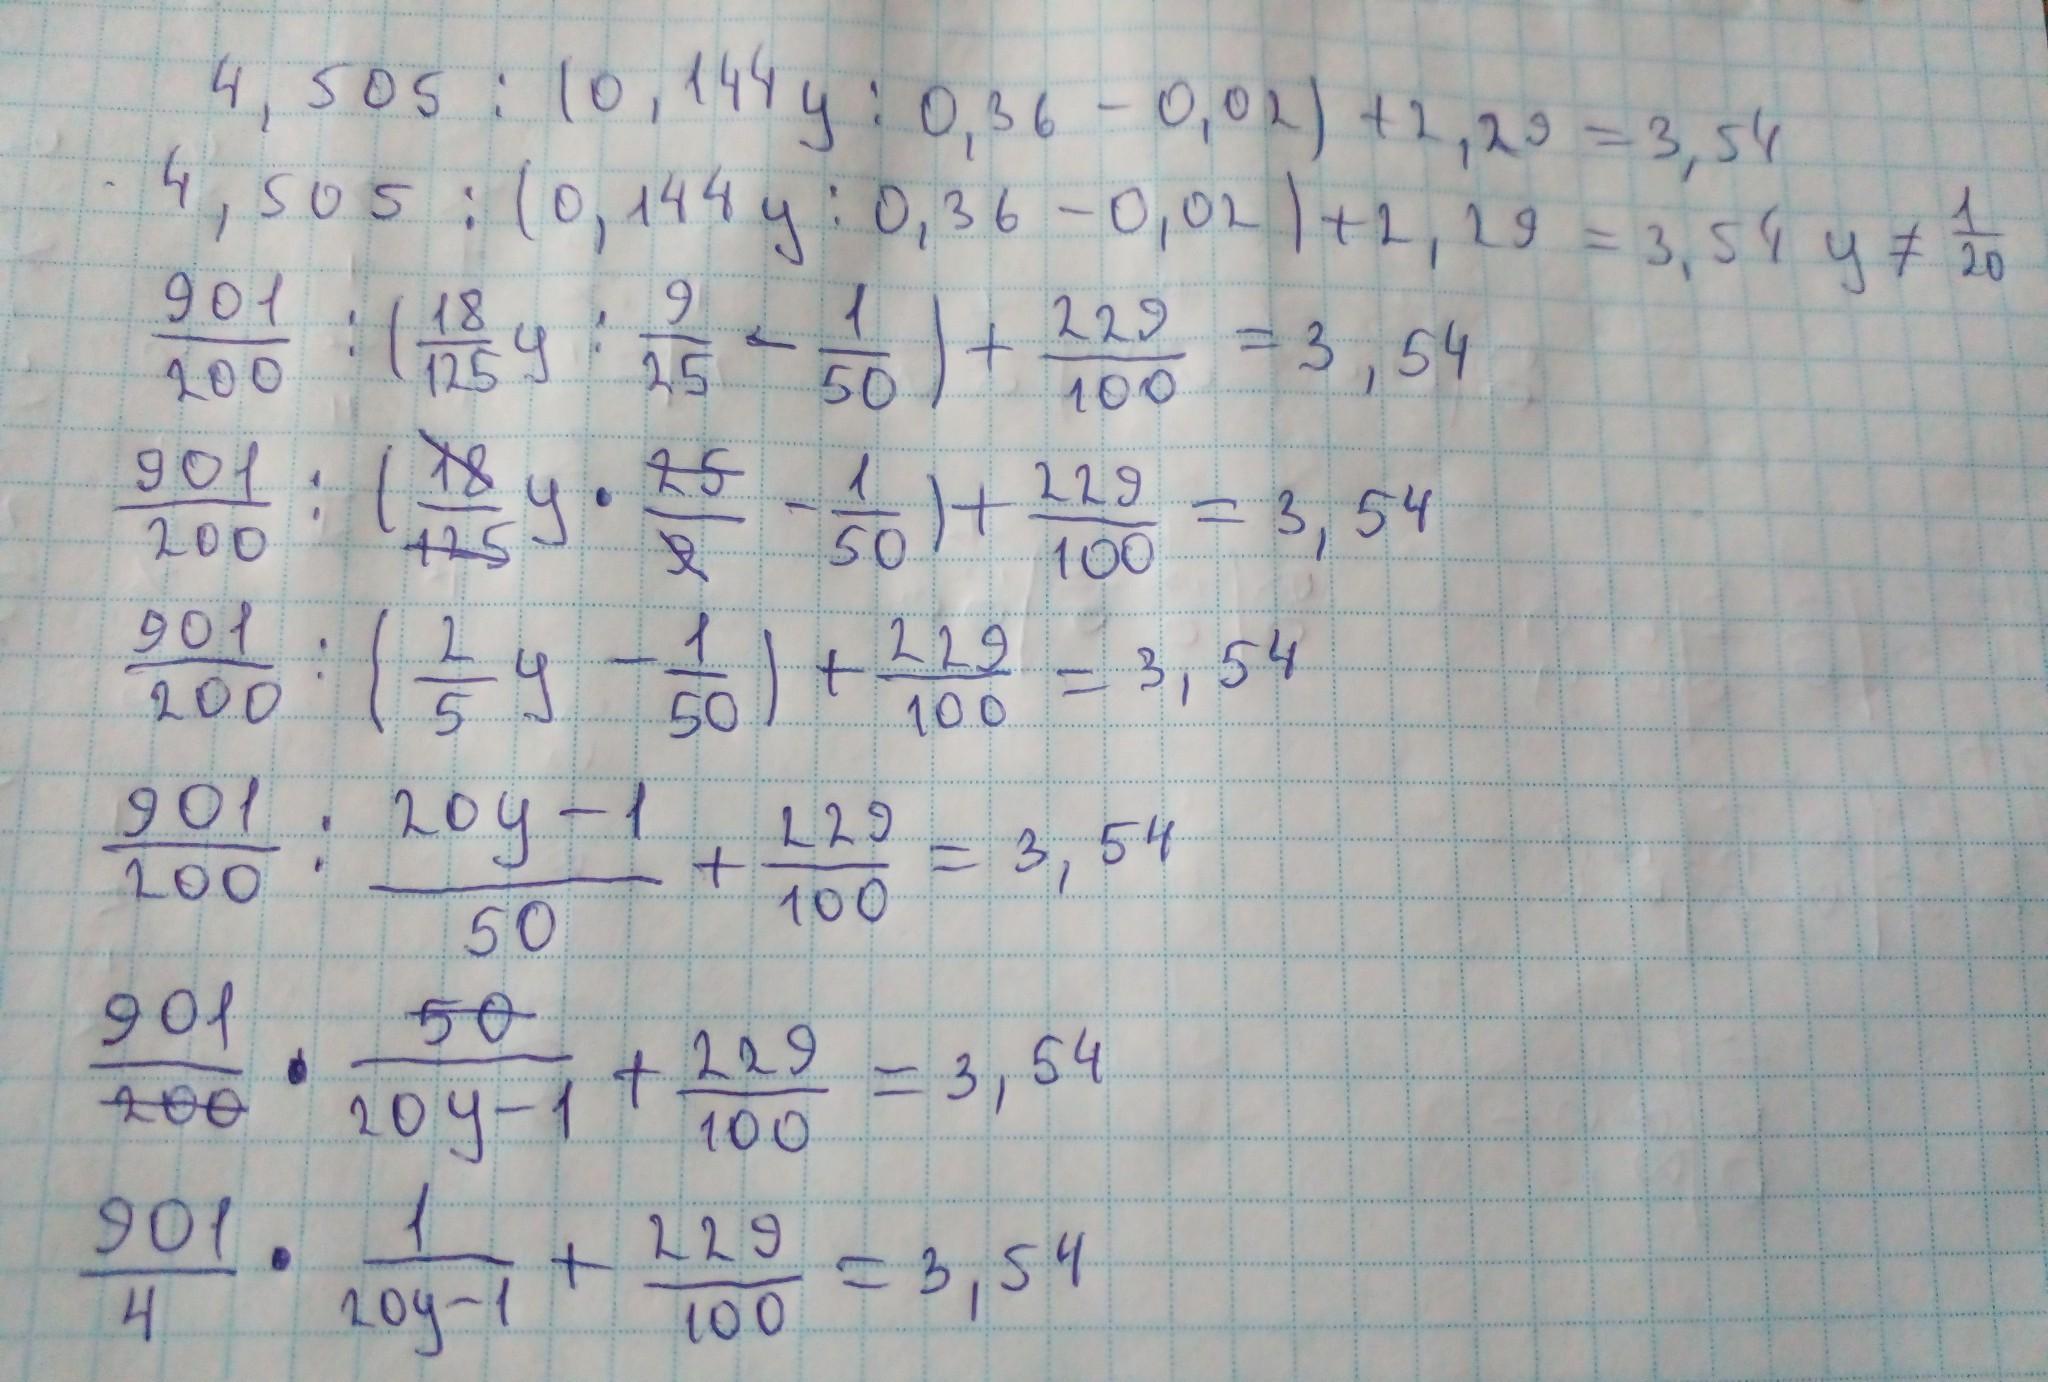 4,505 : (0,144y : 0,36 - 0,02) + 2,29 = 3,54
4,505 : (0,144y : 0,36 - 0,02) + 2,29 = 3,54 y ≠ 1/20
901/200 : (18/125 y : 9/25 - 1/50) + 229/100 = 3,54
901/200 : (18/125 y · 25/9 - 1/50) + 229/100 = 3,54
901/200 : (2/5 y - 1/50) + 229/100 = 3,54
901/200 : (20y-1)/50 + 229/100 = 3,54
901/200 · 50/(20y-1) + 229/100 = 3,54
901/4 · 1/(20y-1) + 229/100 = 3,54